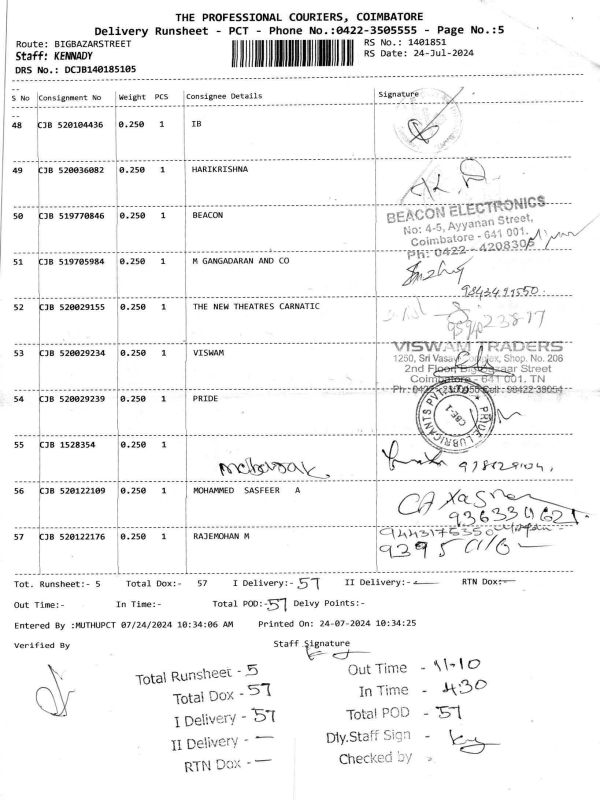 THE PROFESSIONAL COURIERS, COIMBATORE
Delivery Runsheet - PCT - Phone No.:0422-3505555 - Page No.:5
Route: BIGBAZARSTREET RS No.: 1401851
Staff: KENNADY RS Date: 24-Jul-2024
DRS No.: DCJB140185105
S No Consignment No Weight PCS Consignee Details Signature
48 CJB 520104436 0.250 1 IB
49 CJB 520036082 0.250 1 HARIKRISHNA
50 CJB 519770846 0.250 1 BEACON
BEACON ELECTRONICS
No: 4-5, Ayyanan Street,
Coimbatore - 641 001.
Ph: 0422 - 4208306
51 CJB 519705984 0.250 1 M GANGADARAN AND CO
52 CJB 520029155 0.250 1 THE NEW THEATRES CARNATIC
53 CJB 520029234 0.250 1 VISWAM
VISWAM TRADERS
1250, Sri Vasavi Complex, Shop. No. 206
2nd Floor, Big Bazaar Street
Coimbatore - 641 001. TN
54 CJB 520029239 0.250 1 PRIDE
PRIDE LUBRICANTS PVT. LTD.
CBE-1
55 CJB 1528354 0.250 1
56 CJB 520122109 0.250 1 MOHAMMED SASFEER A
57 CJB 520122176 0.250 1 RAJEMOHAN M
Tot. Runsheet:- 5 Total Dox:- 57 I Delivery:- 57 II Delivery:- — RTN Dox:-
Out Time:- In Time:- Total POD:- 57 Delvy Points:-
Entered By :MUTHUPCT 07/24/2024 10:34:06 AM Printed On: 24-07-2024 10:34:25
Verified By Staff Signature
Total Runsheet - 5
Total Dox - 57
I Delivery - 57
II Delivery - —
RTN Dox - —
Out Time - 11-10
In Time - 4:30
Total POD - 57
Dly.Staff Sign -
Checked by -